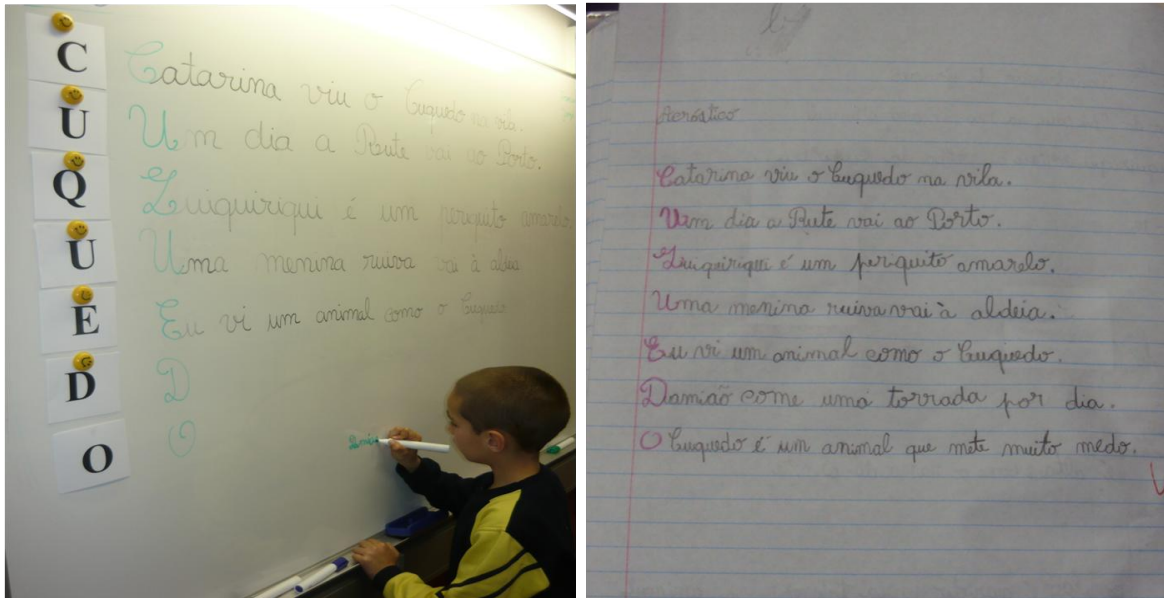 C
U
Q
U
E
D
O
Catarina viu o Cuquedo na vila.
Um dia a Rute vai ao Porto.
Quiquiriqui é um periquito amarelo.
Uma menina ruiva vai à aldeia
Eu vi um animal como o Cuquedo
D
O
Acróstico
Catarina viu o Cuquedo na vila.
Um dia a Rute vai ao Porto.
Quiquiriqui é um periquito amarelo.
Uma menina ruiva vai à aldeia.
Eu vi um animal como o Cuquedo.
Damião come uma torrada por dia.
O Cuquedo é um animal que mete muito medo.